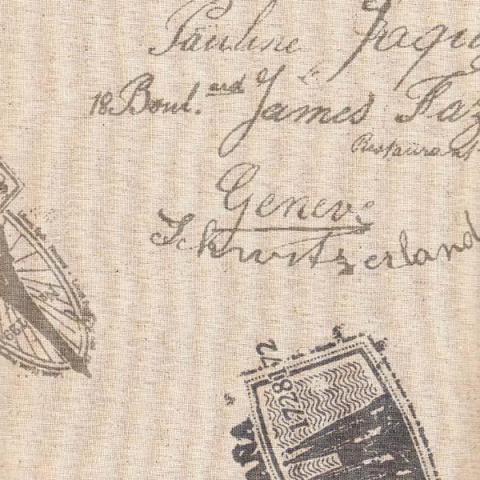 Pauline Jaquc
18 Boul.ard James Faz
Restaurant
Geneve
Schwitzerland
17728172
ARA